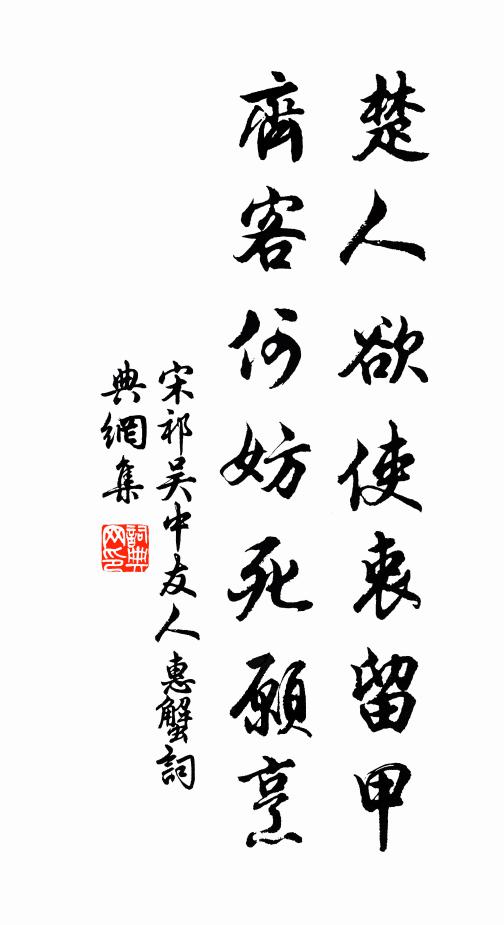 楚人欲使衷留甲
齊客何妨死願烹
宋祁吴中友人惠蟹詞
典網集
詞典
网印